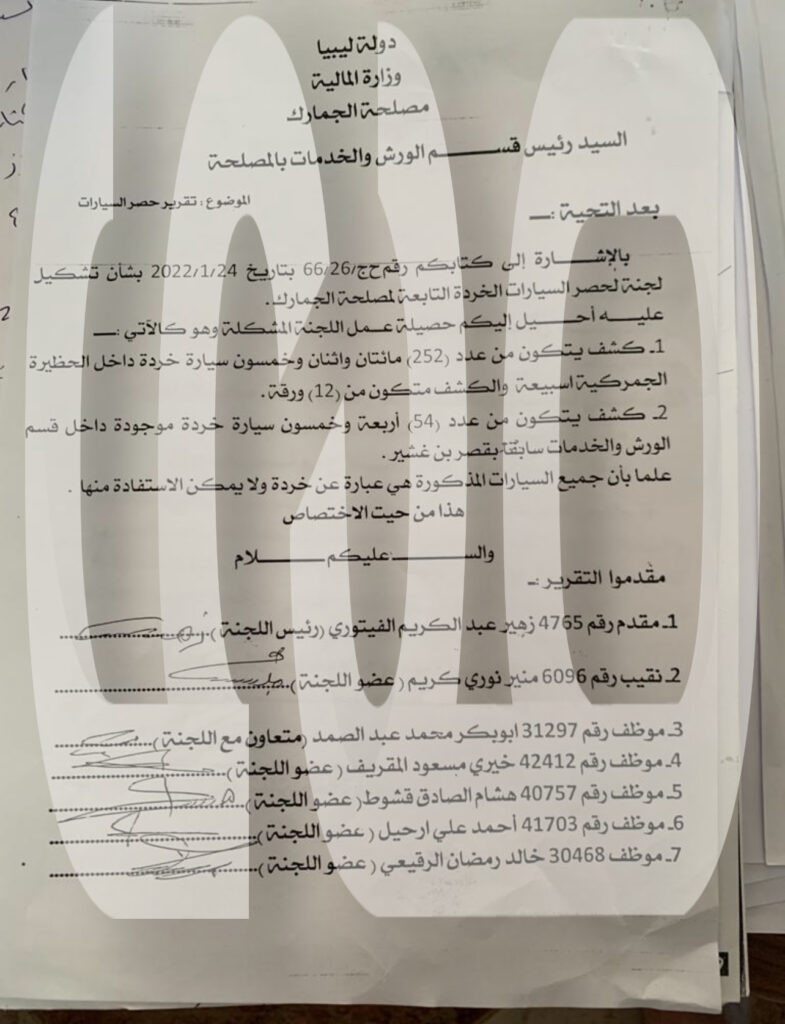 دولة ليبيا
وزارة المالية
مصلحة الجمارك
السيد رئيس قســـــم الورش والخدمات بالمصلحة
الموضوع : تقرير حصر السيارات
بعد التحية :ــ
بالإشـــــارة إلى كتابكم رقم حج/66/26 بتاريخ 2022/1/24 بشأن تشكيل
لجنة لحصر السيارات الخردة التابعة لمصلحة الجمارك.
عليـــه أحـــيل إليكم حصيلة عـمل اللجنة المشكلة وهو كالآتي :ــ
1ـ كشف يتكون من عدد (252) مائتان واثنان وخمسون سيارة خردة داخل الحظيرة
الجمركية اسبيعة والكشف متكون من (12) ورقة .
2ـ كشف يتكون من عدد (54) أربعة وخمسون سيارة خردة موجودة داخل قسم
الورش والخدمات سابقا بقصر بن غشير .
علما بأن جميع السيارات المذكورة هي عبارة عن خردة ولا يمكن الاستفادة منها .
هذا من حيت الاختصاص
والســـــــعليكم ـــــــلام
مقدموا التقرير :ـ
1ـ مقدم رقم 4765 زهير عبد الكريم الفيتوري (رئيس اللجنة )
2ـ نقيب رقم 6096 منير نوري كريم ( عضو اللجنة )
3ـ موظف رقم 31297 ابوبكر محمد عبد الصمد (متعاون مع اللجنة )
4ـ موظف رقم 42412 خيري مسعود المقريف ( عضو اللجنة )
5ـ موظف رقم 40757 هشام الصادق قشوط( عضو اللجنة )
6ـ موظف رقم 41703 أحمد علي ارحيل ( عضو اللجنة )
7ـ موظف 30468 خالد رمضان الرقيعي ( عضو اللجنة )